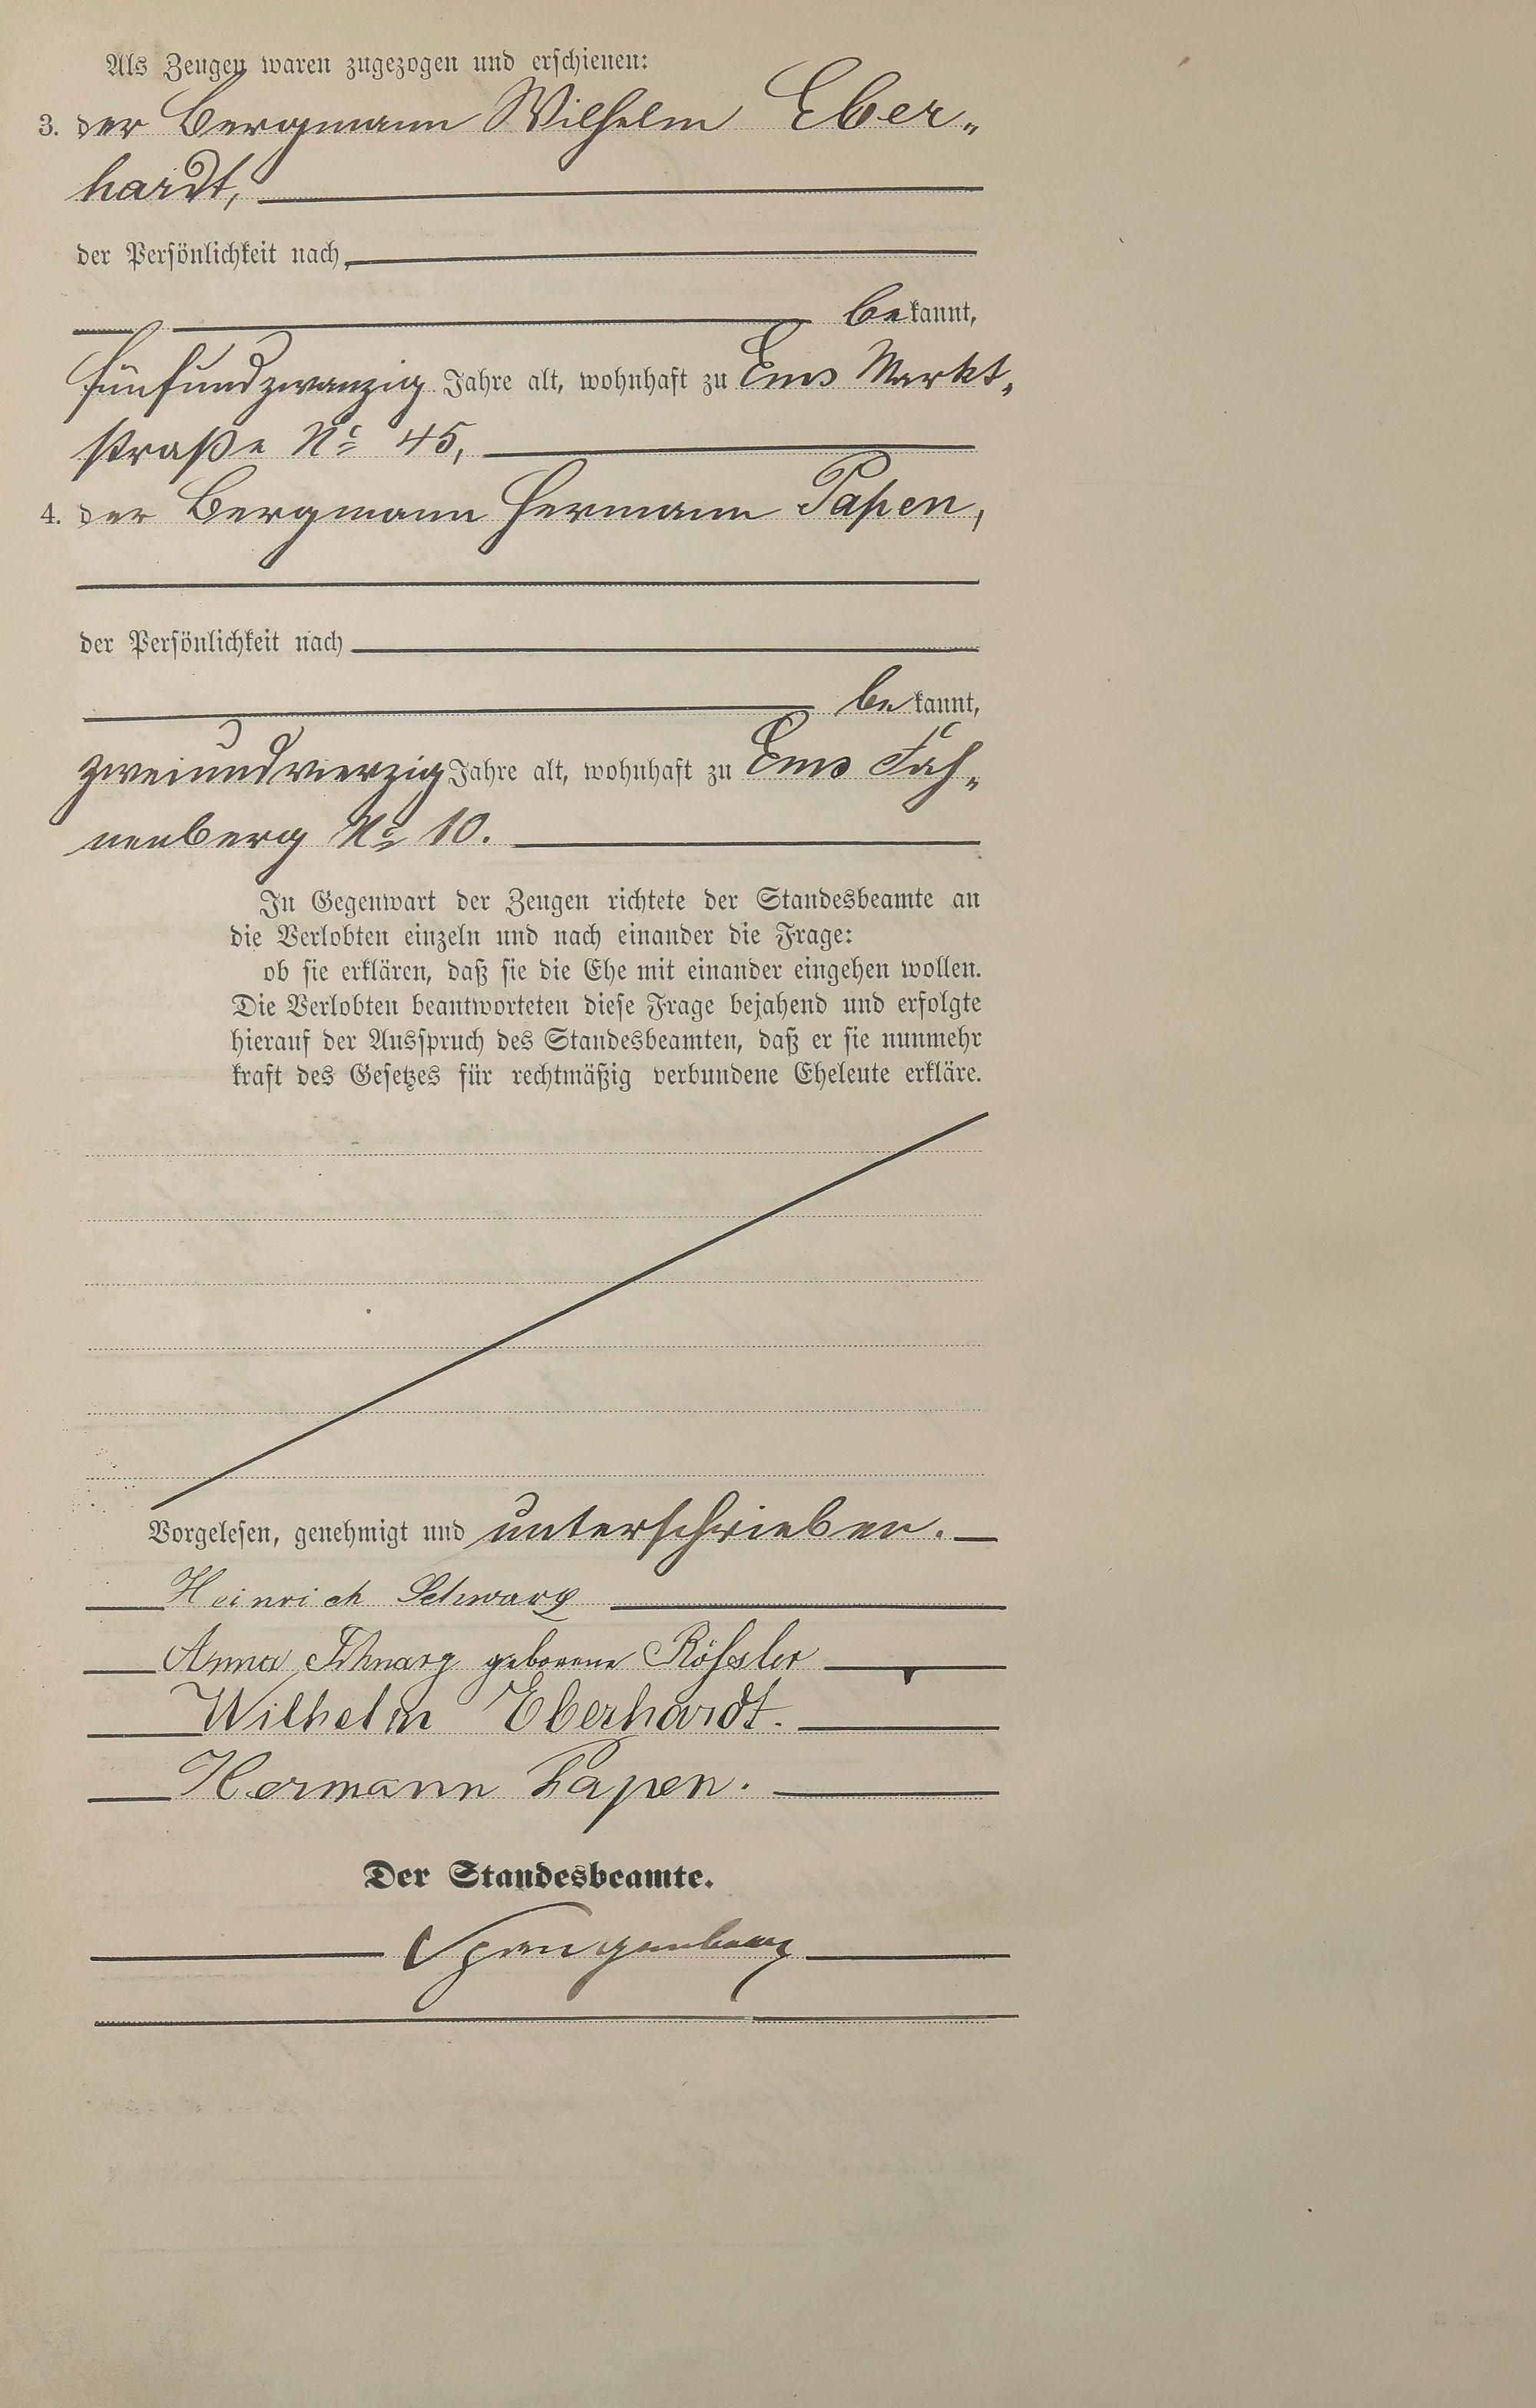 Als Zeugen waren zugezogen und erschienen:
3. der Bergmann Wilhelm Eber-
hardt,
der Persönlichkeit nach
bekannt,
fünfundzwanzig Jahre alt, wohnhaft zu Ems Markt-
straße No 45,
4. der Bergmann Hermann Papen,
der Persönlichkeit nach
bekannt,
zweiundvierzig Jahre alt, wohnhaft zu Ems Fah-
nenberg No 10.
In Gegenwart der Zeugen richtete der Standesbeamte an
die Verlobten einzeln und nach einander die Frage:
ob sie erklären, daß sie die Ehe mit einander eingehen wollen.
Die Verlobten beantworteten diese Frage bejahend und erfolgte
hierauf der Ausspruch des Standesbeamten, daß er sie nunmehr
kraft des Gesetzes für rechtmäßig verbundene Eheleute erkläre.
Vorgelesen, genehmigt und unterschrieben.
Heinrich Schwarz
Anna Schwarz geborene Rößler
Wilhelm Eberhardt.
Hermann Papen.
Der Standesbeamte.
Spangenberg